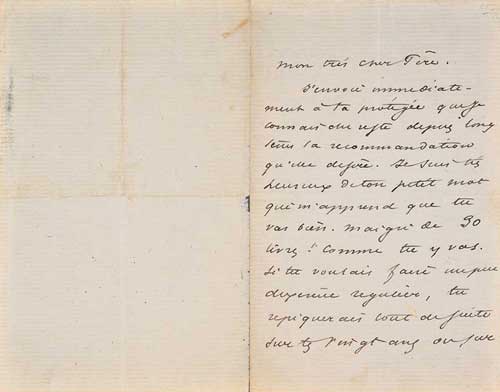 mon très cher Père.
J'envoie immédiate-
ment à ta protégée que je
connais du reste depuis long
temps la recommandation
qu'elle désire. Je suis très
heureux de ton petit mot
qui m'apprend que tu
vas bien. maigri de 30
livres! Comme tu y vas.
Si tu voulais faire un peu
d'exercice régulier, tu
repiquerais tout de suite
sur tes vingt ans ou sur